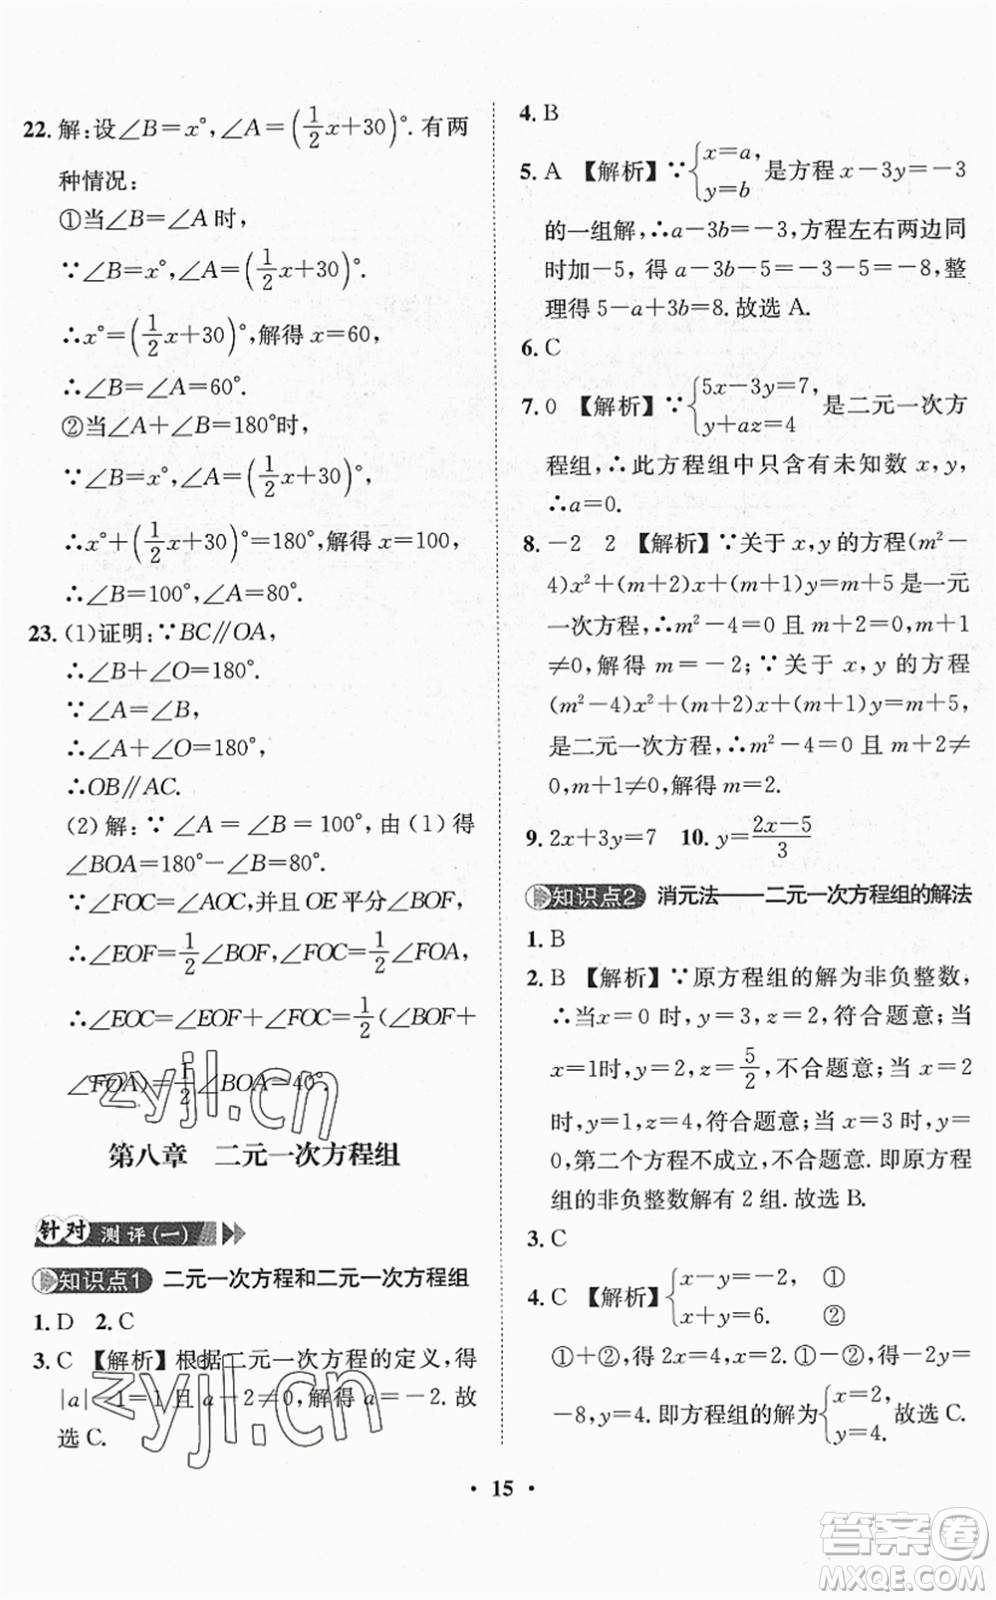 22. 解:设∠B=x°,∠A=(1/2x+30)°. 有两
种情况:
①当∠B=∠A时,
∵∠B=x°,∠A=(1/2x+30)°.
∴x°=(1/2x+30)°,解得 x=60,
∴∠B=∠A=60°.
②当∠A+∠B=180°时,
∵∠B=x°,∠A=(1/2x+30)°.
∴x°+(1/2x+30)°=180°,解得 x=100,
∴∠B=100°,∠A=80°.
23. (1)证明:∵BC∥OA,
∴∠B+∠O=180°.
∵∠A=∠B,
∴∠A+∠O=180°,
∴OB∥AC.
(2) 解:∵∠A=∠B=100°, 由 (1) 得
∠BOA=180°-∠B=80°.
∵∠FOC=∠AOC,并且 OE 平分∠BOF,
∴∠EOF=1/2∠BOF,∠FOC=1/2∠FOA,
∴∠EOC=∠EOF+∠FOC=1/2(∠BOF+
∠FOA)=1/2∠BOA=40°.
zyjl.cn
第八章 二元一次方程组
针对 测评(一)
知识点1 二元一次方程和二元一次方程组
1. D 2. C
3. C 【解析】根据二元一次方程的定义,得
|a|-1=1 且 a-2≠0,解得 a=-2. 故
选 C.
zyjl.cn
4. B
5. A 【解析】∵{x=a, y=b 是方程 x-3y=-3
的一组解,∴a-3b=-3,方程左右两边同
时加-5, 得 a-3b-5=-3-5=-8,整
理得 5-a+3b=8. 故选 A.
6. C
7. 0 【解析】∵{5x-3y=7, y+az=4 是二元一次方
程组,∴此方程组中只含有未知数 x,y,
∴a=0.
8. -2 2 【解析】∵关于 x,y 的方程(m²-
4)x²+(m+2)x+(m+1)y=m+5 是一元
一次方程,∴m²-4=0 且 m+2=0,m+1
≠0,解得 m=-2;∵关于 x,y 的方程
(m²-4)x²+(m+2)x+(m+1)y=m+5,
是二元一次方程,∴m²-4=0 且 m+2≠
0,m+1≠0,解得 m=2.
9. 2x+3y=7 10. y=(2x-5)/3
知识点2 消元法——二元一次方程组的解法
1. B
2. B 【解析】∵原方程组的解为非负整数,
∴当x=0 时,y=3,z=2,符合题意;当
x=1时,y=2,z=5/2,不合题意;当 x=2
时,y=1,z=4,符合题意;当 x=3 时,y=
0,第二个方程不成立,不合题意. 即原方程
组的非负整数解有 2 组. 故选 B.
3. C
4. C 【解析】{x-y=-2, ① x+y=6. ②
①+②,得 2x=4,x=2,①-②,得-2y=
-8,y=4. 即方程组的解为{x=2, y=4. 故选 C.
• 15 •
答案卷
MXQE.COM